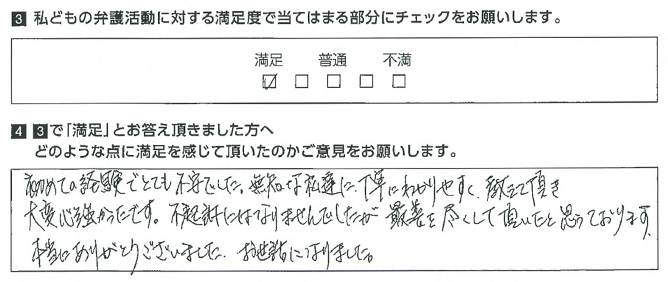 3 私どもの弁護活動に対する満足度で当てはまる部分にチェックをお願いします。
満足 普通 不満
☑ □ □ □ □
4 3で「満足」とお答え頂きました方へ
どのような点に満足を感じて頂いたのかご意見をお願いします。
初めての経験でとても不安でした。無知な私達に、丁寧にわかりやすく、教えて頂き
大変心強かったです。不起訴にはなりませんでしたが最善を尽くして頂いたと思っております。
本当にありがとうございました。お世話になりました。